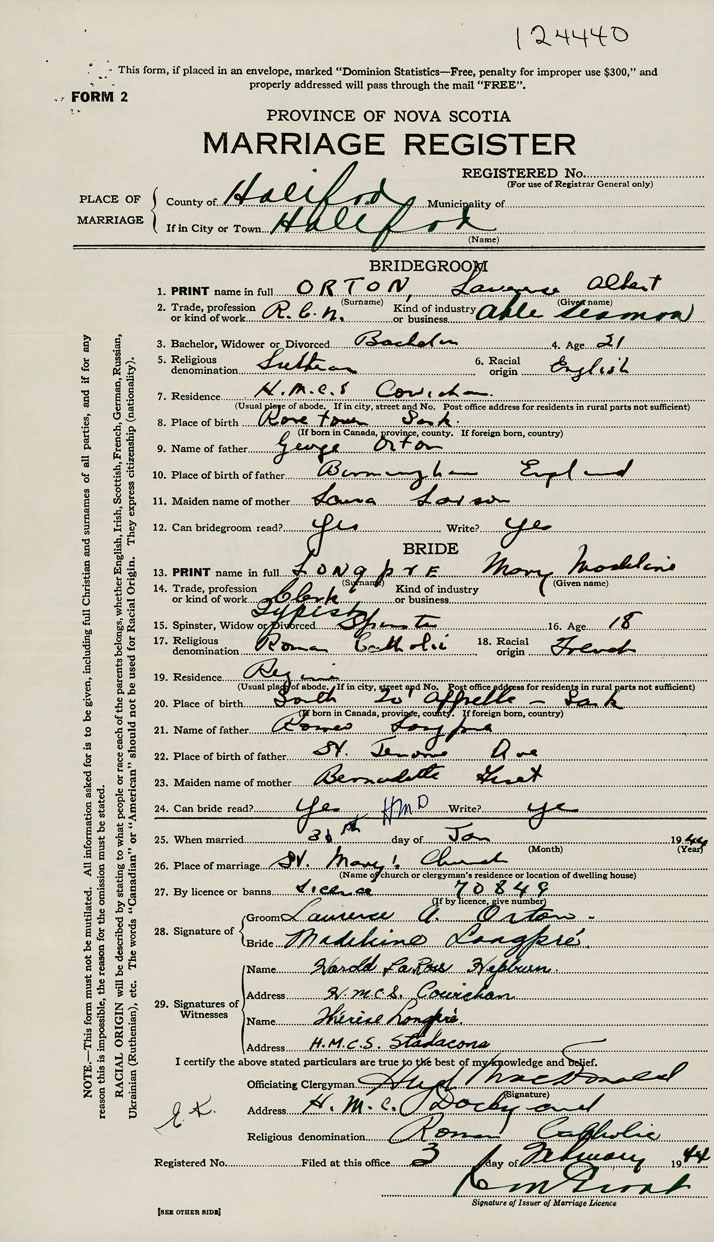 124440
This form, if placed in an envelope, marked "Dominion Statistics—Free, penalty for improper use $300," and
properly addressed will pass through the mail "FREE".
FORM 2
PROVINCE OF NOVA SCOTIA
MARRIAGE REGISTER
REGISTERED No.
(For use of Registrar General only)
PLACE OF MARRIAGE
County of Halifax Municipality of
If in City or Town Halifax
(Name)
BRIDEGROOM
1. PRINT name in full ORTON, Lawrence Albert
(Surname) (Given name)
2. Trade, profession or kind of work R.C.N. Kind of industry or business Able Seaman
3. Bachelor, Widower or Divorced Bachelor 4. Age 21
5. Religious denomination Lutheran 6. Racial origin English
7. Residence H.M.C.S Cowichan
(Usual place of abode. If in city, street and No. Post office address for residents in rural parts not sufficient)
8. Place of birth Rosetown Sask.
(If born in Canada, province, county. If foreign born, country)
9. Name of father George Orton
10. Place of birth of father Birmingham England
11. Maiden name of mother Laura Larson
12. Can bridegroom read? Yes Write? Yes
BRIDE
13. PRINT name in full LONGPRE Mary Madeline
(Surname) (Given name)
14. Trade, profession or kind of work Clerk Typist Kind of industry or business
15. Spinster, Widow or Divorced Spinster 16. Age 18
17. Religious denomination Roman Catholic 18. Racial origin French
19. Residence Regina
(Usual place of abode. If in city, street and No. Post office address for residents in rural parts not sufficient)
20. Place of birth South Qu'Appelle - Sask
(If born in Canada, province, county. If foreign born, country)
21. Name of father Romeo Longpre
22. Place of birth of father St. Jerome
23. Maiden name of mother Bernadette
24. Can bride read? Yes HMD Write? Yes
25. When married day of Jan 1944
(Month) (Year)
26. Place of marriage St. Mary's Church
(Name of church or clergyman's residence or location of dwelling house)
27. By licence or banns Licence 70849
(If by licence, give number)
28. Signature of
Groom Laurence A. Orton
Bride Madeleine Longpré
29. Signatures of Witnesses
Name Harold LaRoss Hepburn
Address H.M.C.S. Cowichan
Name Thérèse Longpré
Address H.M.C.S. Stadacona
I certify the above stated particulars are true to the best of my knowledge and belief.
Officiating Clergyman Hugh MacDonald
(Signature)
Address H.M.C. Dockyard
Religious denomination Roman Catholic
Registered No. Filed at this office 3 day of February 1944
Signature of Issuer of Marriage Licence
[SEE OTHER SIDE]
NOTE.—This form must not be mutilated. All information asked for is to be given, including full Christian and surnames of all parties, and if for any
reason this is impossible, the reason for the omission must be stated.
RACIAL ORIGIN will be described by stating to what people or race each of the parents belongs, whether English, Irish, Scottish, French, German, Russian,
Ukrainian (Ruthenian), etc. The words "Canadian" or "American" should not be used for Racial Origin. They express citizenship (nationality).